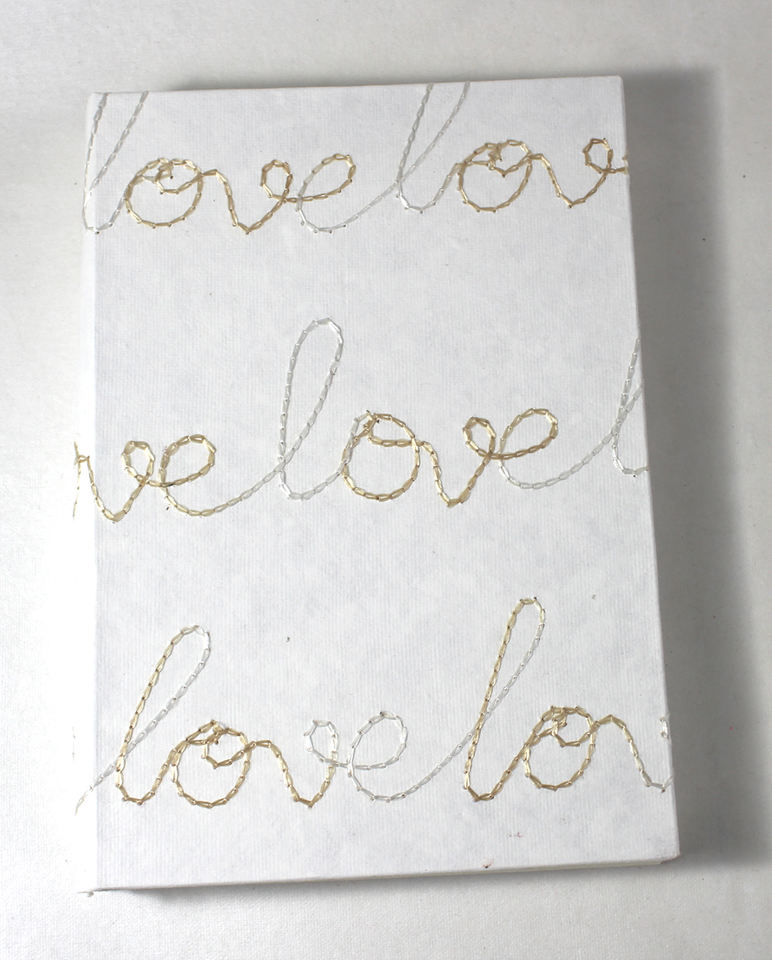 love love
ve love l
love lov